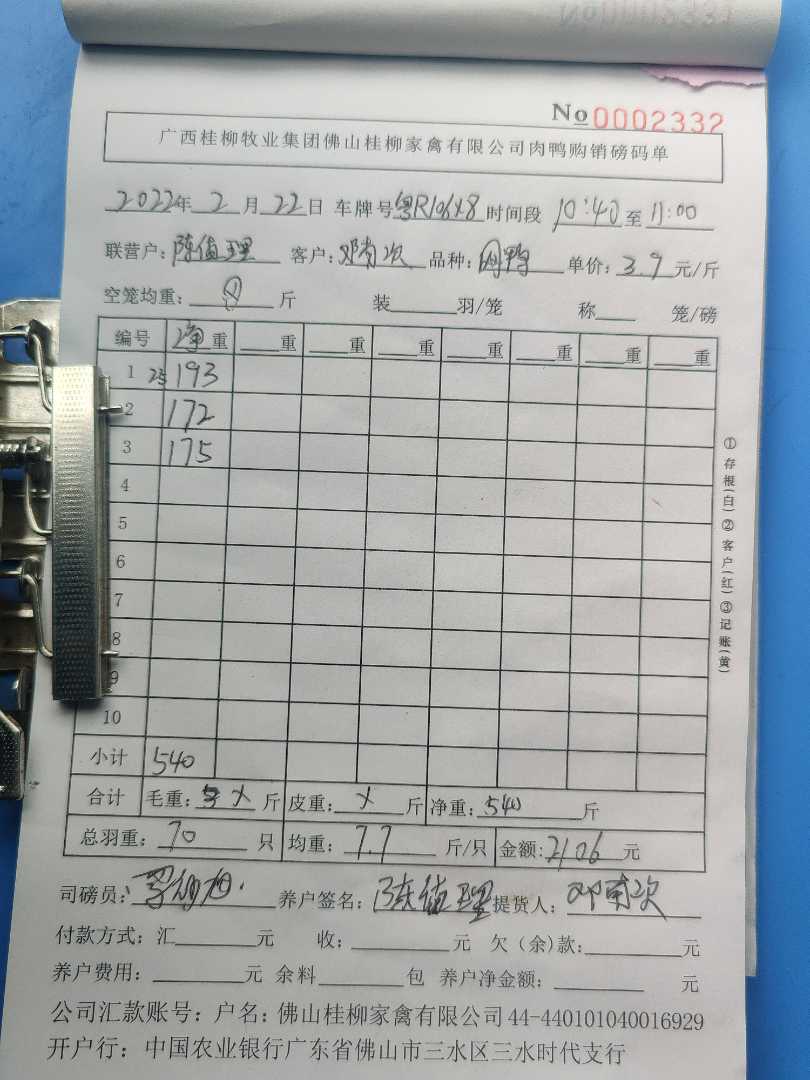 No 0002332
广西桂柳牧业集团佛山桂柳家禽有限公司肉鸭购销磅码单
2022年 2 月 22 日 车牌号 粤R106X8 时间段 10:40 至 11:00
联营户: 陈值理 客户: 邓南次 品种: 肉鸭 单价: 3.9 元/斤
空笼均重: 斤 装 羽/笼 称 笼/磅
编号 净重 重 重 重 重 重 重 重
1 25 193
2 172
3 175
4
5
6
7
8
9
10
小计 540
合计 毛重: X 斤 皮重: X 斤 净重: 540 斤
总羽重: 70 只 均重: 7.7 斤/只 金额: 2106 元
司磅员: 养户签名: 陈值理 提货人: 邓南次
付款方式: 汇 元 收: 元 欠(余)款: 元
养户费用: 元 余料 包 养户净金额: 元
公司汇款账号: 户名: 佛山桂柳家禽有限公司 44-440101040016929
开户行: 中国农业银行广东省佛山市三水区三水时代支行
①存根(白)②客户(红)③记账(黄)